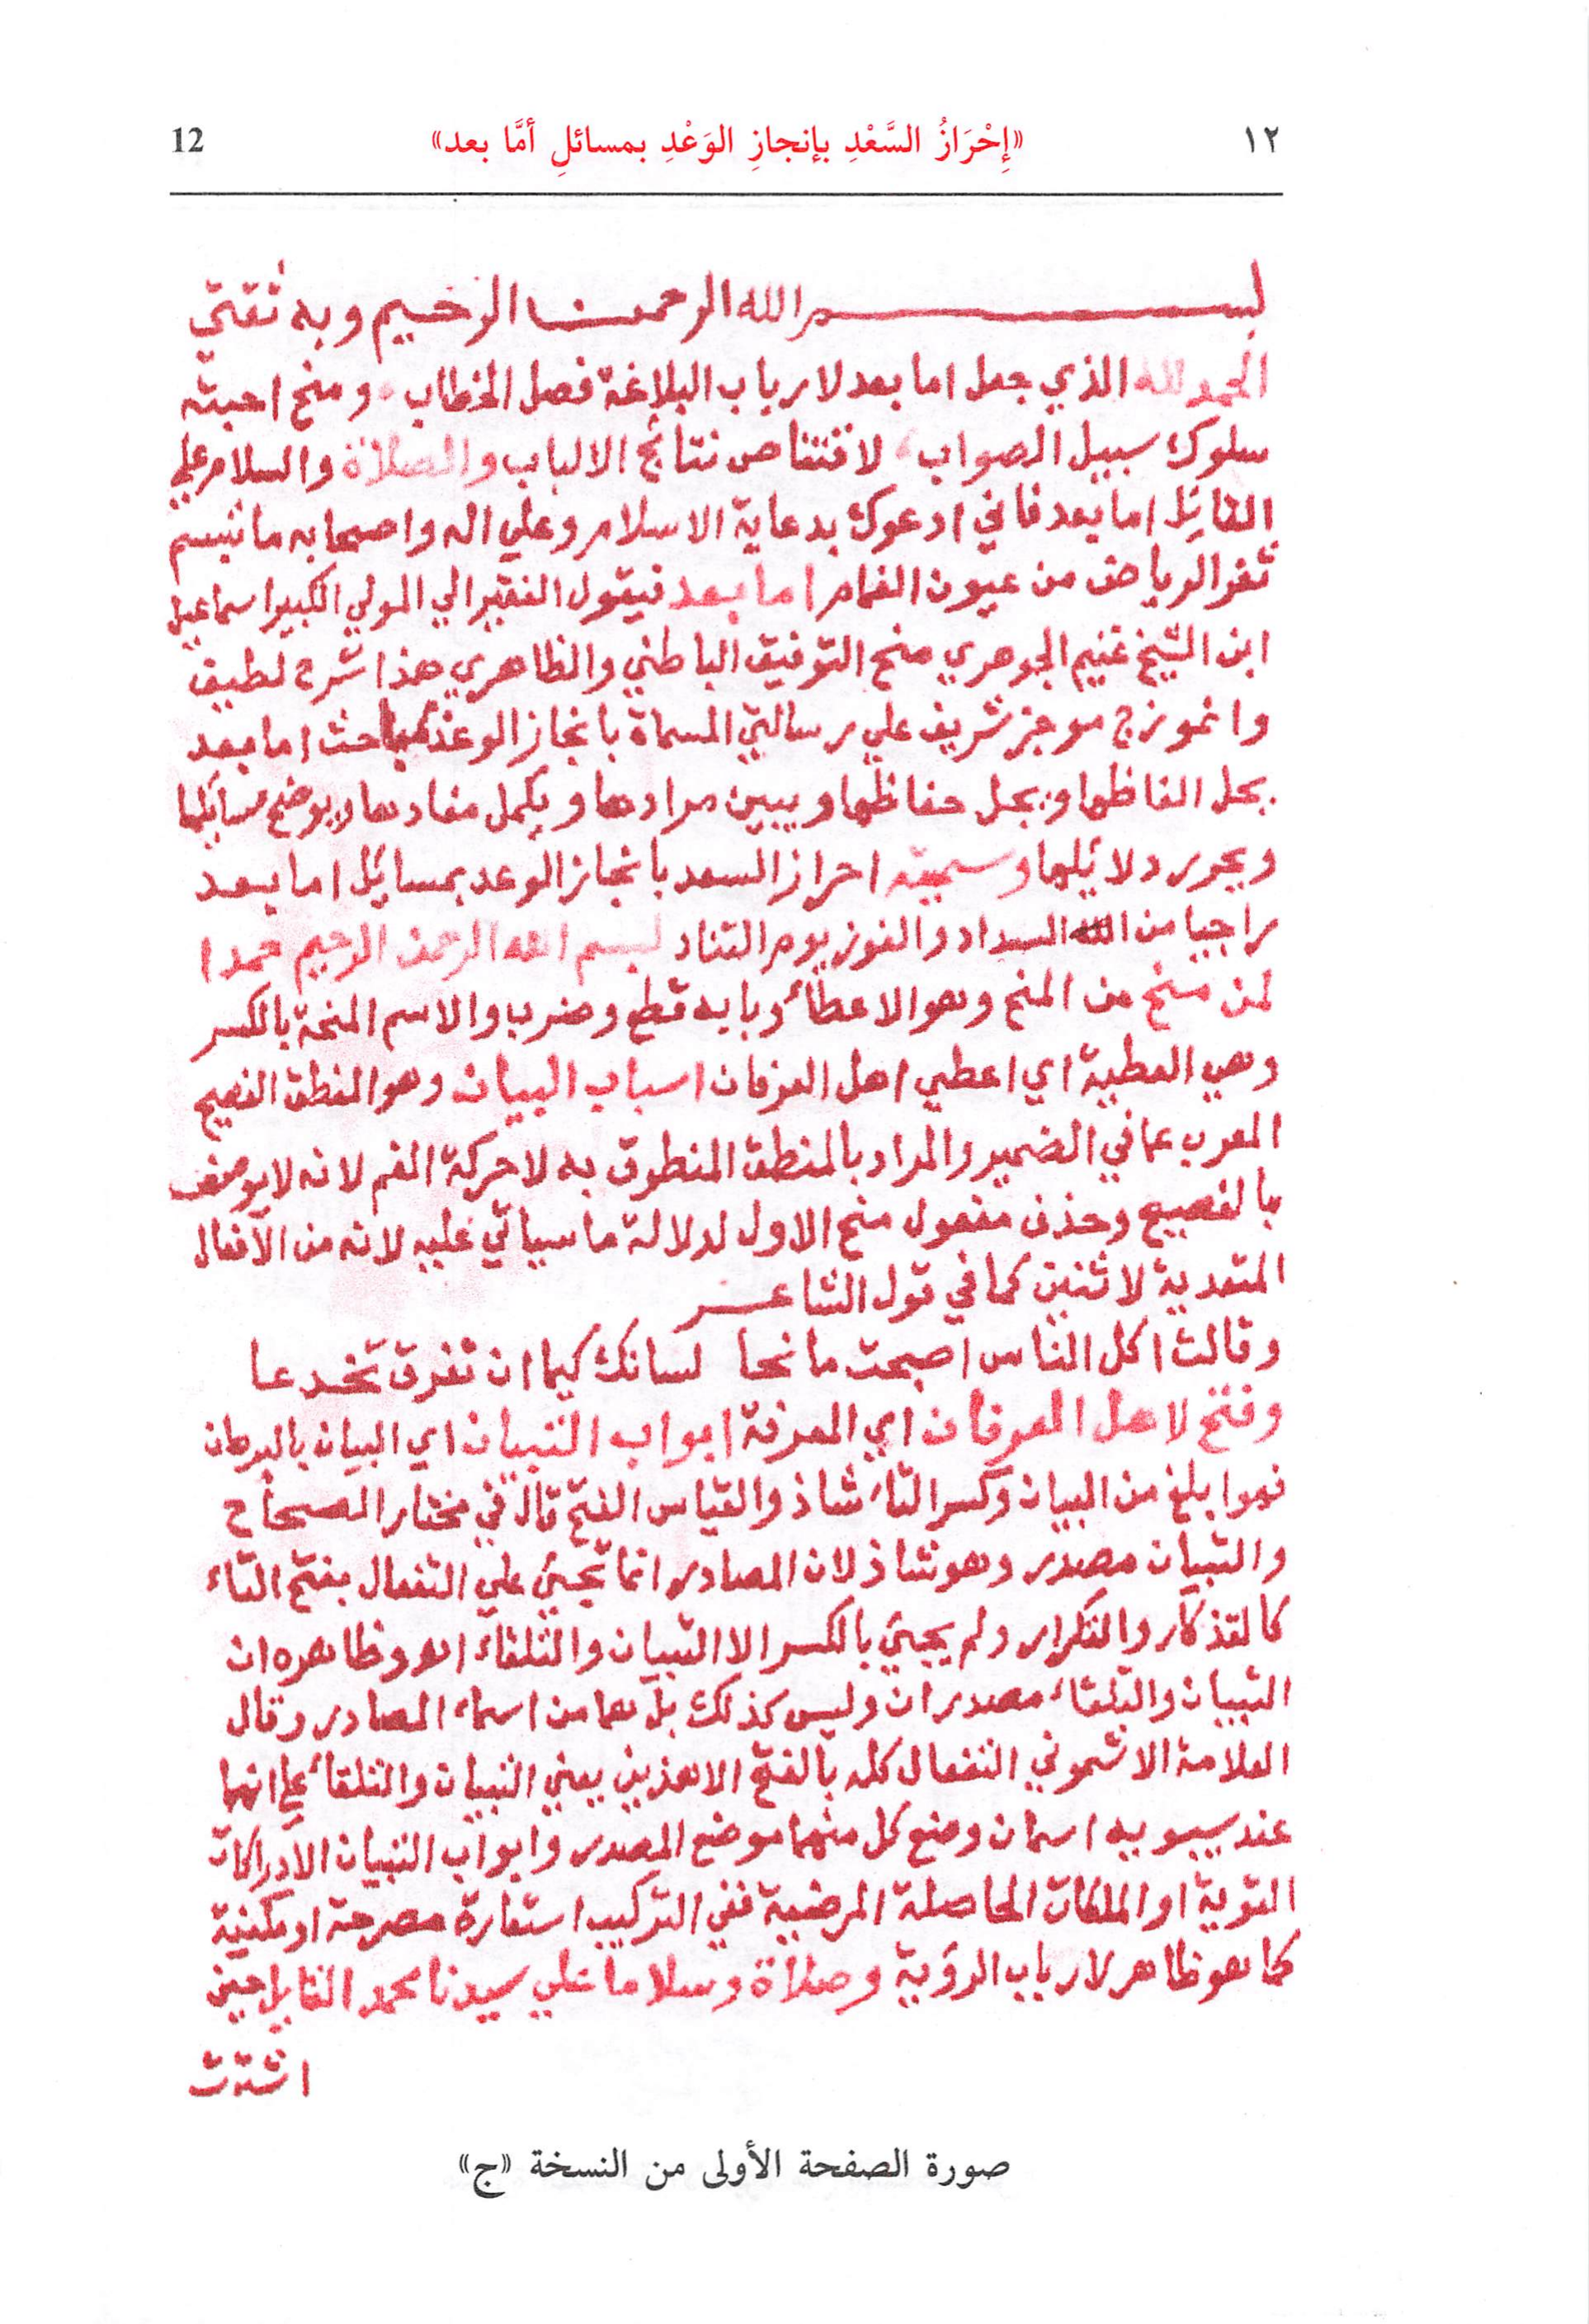 ١٢ «إِحْرَازُ السَّعْدِ بإنجازِ الوَعْدِ بمسائلِ أمَّا بعد» 12
بسم الله الرحمن الرحيم وبه ثقتي
الحمد لله الذي جعل اما بعد لارباب البلاغة فصل الخطاب ومنح احبته
سلوك سبيل الصواب لاقتناص نتائج الالباب والصلاة والسلام علي
القائل اما بعد فاني ادعوك بدعاية الاسلام وعلي اله واصحابه ما تبسم
ثغر الرياض من عيون الغمام اما بعد فيقول الفقير الي المولي الكبير اسماعيل
ابن الشيخ غنيم الجوهري منح التوفيق الباطني والظاهري هذا شرح لطيف
وانموزج موجز شريف علي رسالتي المسماة بانجاز الوعد بمباحث اما بعد
يحل الفاظها ويجل حفاظها ويبين مرادها ويكمل مفادها ويوضح مسائلها
ويحرر دلائلها وسميته احراز السعد بانجاز الوعد بمسائل اما بعد
راجيا من الله السداد والفوز يوم التناد بسم الله الرحمن الرحيم حمدا
لمن منح من المنح وهو الاعطاء وبابه قطع وضرب والاسم المنحة بالكسر
وهي العطية اي اعطي اهل العرفان اسباب البيان وهو المنطق الفصيح
المعرب عما في الضمير والمراد بالمنطق المنطوق به لا حركة الفم لانه لا يوصف
بالفصيح وحذف مفعول منح الاول لدلالة ما سياتي عليه لانه من الافعال
المتعدية لاثنين كما في قول الشاعر
وقالت اكل الناس اصبحت مانحا لسانك كيما ان تغر وتخدعا
وفتح لاهل العرفان اي المعرفة ابواب التبيان اي البيان بالبرهان
فهو ابلغ من البيان وكسر التاء شاذ والقياس الفتح قال في مختار الصحاح
والتبيان مصدر وهو شاذ لان المصادر انما تجيئ علي التفعال بفتح التاء
كالتذكار والتكرار ولم يجيئ بالكسر الا التبيان والتلقاء اهـ وظاهره ان
التبيان والتلقاء مصدران وليس كذلك بل هما من اسماء المصادر وقال
العلامة الاشموني التفعال كله بالفتح الا هذين يعني التبيان والتلقاء علي انهما
عند سيبويه اسمان وضع كل منهما موضع المصدر وابواب التبيان الادراكات
القوية او الملكات الحاصلة المرضية ففي التركيب استعارة مصرحة او مكنية
كما هو ظاهر لارباب الروية وصلاة وسلاما علي سيدنا محمد القايل حين
اشتدت
صورة الصفحة الأولى من النسخة «ج»